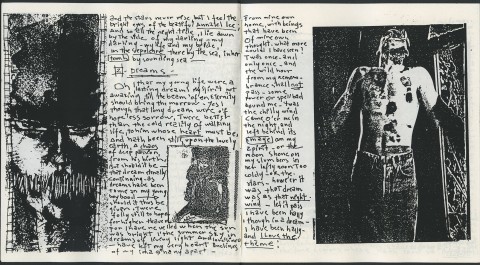 and the stars never rise, but I feel the
bright eyes of the beautiful annabel lee.
and so all the night-tide, I lie down
by the side of my darling - my
darling - my life and my bride,
in the sepulchre there by the sea, in her
tomb by sounding sea.
- Dreams -
Oh that my young life were a
lasting dream! my spirit not
awaking, till the beam of an eternity
should bring the morrow. Yes!
though that long dream were of
hopeless sorrow, Twere better
than the cold reality of waking
life, to him whose heart must be,
and hath been still, upon the lovely
earth, a chaos
of deep passion,
from his birth.
But should it be -
that dream eternally
continuing - as
dreams have been
to me in my young
boyhood -
should it thus be
given, twere
folly still to hope
for higher heaven.
For I have revelled when the sun
was bright i' the summer sky, in
dreams of living light and loveliness
- have left my very heart
of my apart
From mine own
home, with beings
that have been
Of mine own
thought - what more
could I have seen?
Twas once - and
only once - and
the wild hour
from my remem-
brance shall not
pass - some
power or spell had
bound me - twas
the chilly wind
came o'er me in
the night, and
left behind its
image on my
spirit - or the
moon shone on
my slumbers in
her lofty noon Too
coldly - or the
stars - howe'er it
was that dream
was as that night-
wind - let it pass
I have been happy
though in a dream -
I have been happy -
and I love the
theme!